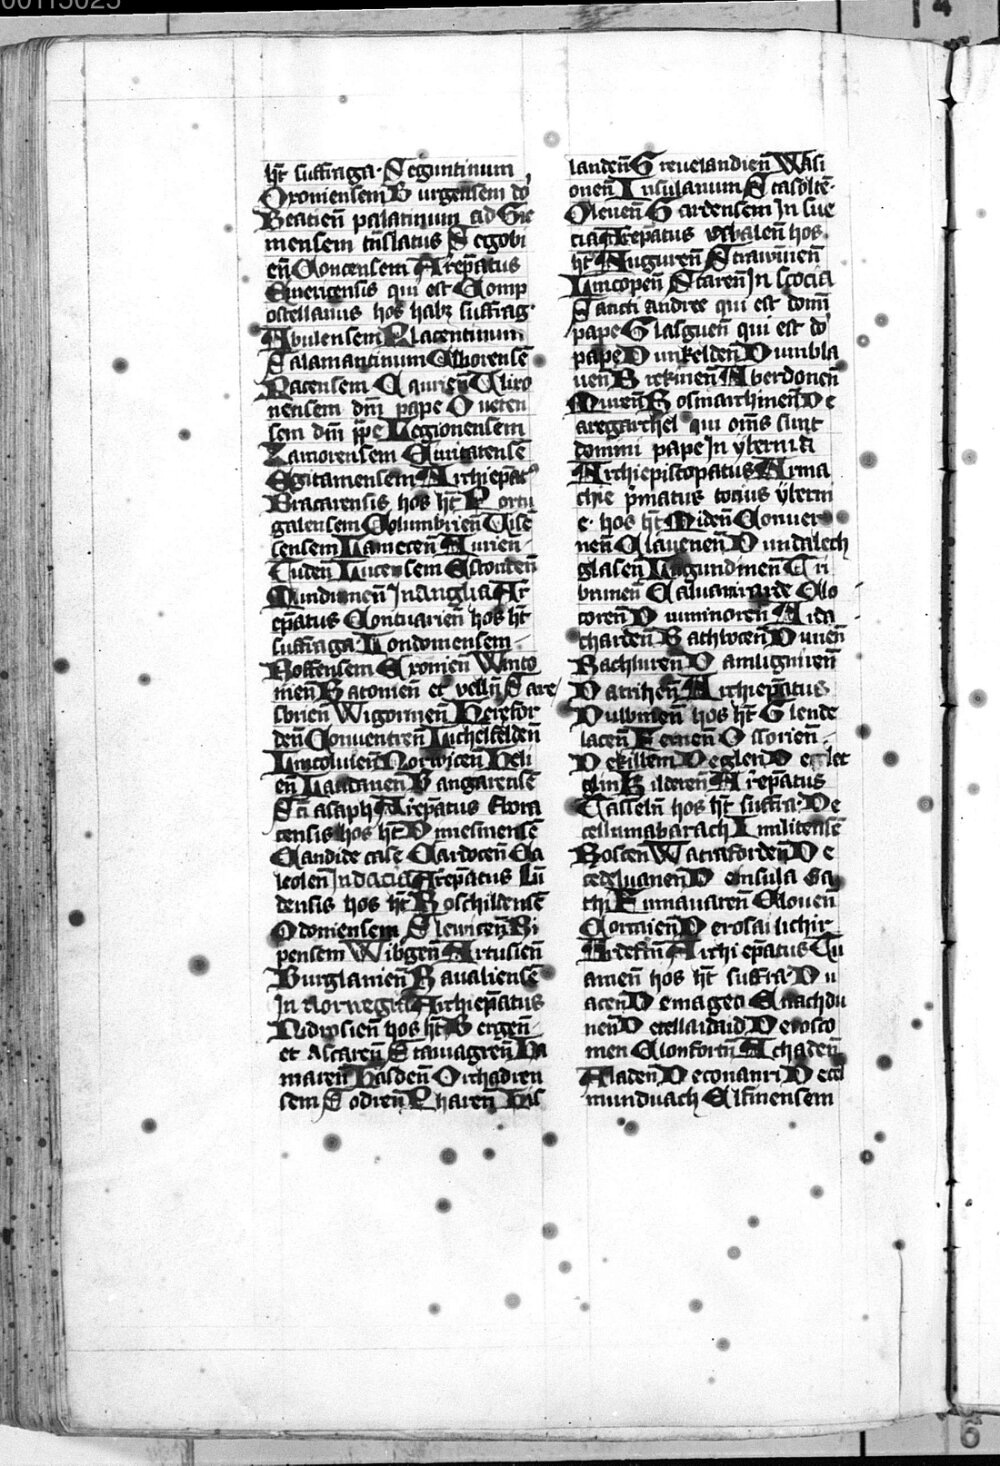 00115025
hr̄t suffraga· Seguntinum
Oxoniensem Burgensem do
Beatien̄ palatinum ad Gie
mensem trn̄slatus Segobi
en̄ Concensem Arep̄atus
Emericensis qui est Comp
ostellanus hos habz suffrag·
Abulensem Placentinum
Salamantinum Elborense̅
Pacensem Caurien̄
nensem dn̄i pape Oueten
sem dn̄i p̄pe Legionensem
Zamorensem Ciuitatense̅
Egitamensem Archiepat9
Bracarensis hos hn̄t Portu
galensem Columbrien̄ Vise̅
sensem Lamecen̄ Aurien·
Tuden̄ Lucensem Astoricen̄
Mindunien̄ In Anglia Ar
ep̄atus Cantuarien̄ hos hn̄t
suffraga Londoniensem·
Roffensem Exonien̄ Winto
nien̄ Batonien̄ et vellīn̄ Sare
sbrien̄ Wigornien̄ Herefor
den̄ Conuentren̄ Lichelfelden̄
Lincolnien̄ Norwicen̄ Heli
en̄ Landauen̄ Bangarense̅
Sc̄i asaph Arep̄atus Ebora
censis hos hn̄t Dunesmense̅
Candide case Cardocen̄ Ca
leolen̄ In dacia Arep̄atus Lū
densis hos hn̄t Roschildense̅
Odoniensem Slewicen̄ Ri
pensem Wibgen̄ Artusien̄
Burglanien̄ Haualiense̅
In Norwegia Archiep̄atus
Nidrosien̄ hos hn̄t Bergen̄·
et Ascaren̄ Stawagren̄ Ha
maren̄ Hasden̄ Orchadien
sem Sodren̄ Pharen̄ His
landen̄ Greuelandien̄ Wasi
onen̄ Insulanum Stasolte̅·
Oleuen̄ Gardensem In sue
cia Arep̄atus vsbalen̄ hos
hn̄t Auguren̄ Strawinen̄
Lincopen̄ Scaren̄ In scocia
Sancti andree qui est domi̅
pape Glasguen̄ qui est do̅
pape Dunkelden̄ Dumbla
nen̄ Brekinen̄ Aberdonen̄
Muren̄ Rosmarchinen̄ De
aregarchel qui om̄s sunt
domini pape In ybernia
Archiepiscopatus Arma
chie p̄matus tocius yberni
e· hos hn̄t Miden̄ Conuer
nen̄ Clauenen̄ Dundalech
glasen̄ Lugundinen̄ Tri
brunen̄ Caluanirarde Clo
coren̄ Duminoren̄ Arda
charden̄ Rachlocen̄ Dunen̄
Rachluren̄ Damliguiren̄
Darrihen̄ Archiep̄atus
Dulbinen̄ hos hn̄t Glende
lacen̄ Fernen̄ Ossorien̄·
Dekillem Deglen Deglet
glin Kilderen̄ Arep̄atus
Casseln̄ hos hn̄t suffra· De
cellumabarach Imilicense̅
Roscen̄ Watraforden̄ De
cedeluanen̄ De insula Ga
thi Firmauaren̄ Clouen̄
Corcaien̄ De rosailichir
Ardefin̄ Archiep̄atus Tu
amen̄ hos hn̄t suffra· Du
acen̄ De mageo Enachdu
nen̄ De cellaidaid De rosco
men Clonfortn̄ Achaden̄
Aladen̄ De conanri De cel
munduach Elfinensem